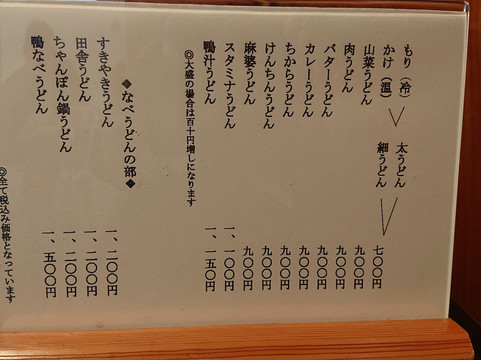 もり（冷） 太うどん
かけ（温） 細うどん 七〇〇円
山菜うどん 九〇〇円
肉うどん 九〇〇円
バターうどん 九〇〇円
カレーうどん 九〇〇円
ちからうどん 九〇〇円
けんちんうどん 九〇〇円
麻婆うどん 九〇〇円
スタミナうどん 一、一〇〇円
鴨汁うどん 一、一五〇円
◎大盛の場合は百十円増しになります
◆なべうどんの部◆
すきやきうどん 一、二〇〇円
田舎うどん 一、二〇〇円
ちゃんぽん鍋うどん 一、二〇〇円
鴨なべうどん 一、五〇〇円
◎全て税込み価格となっています